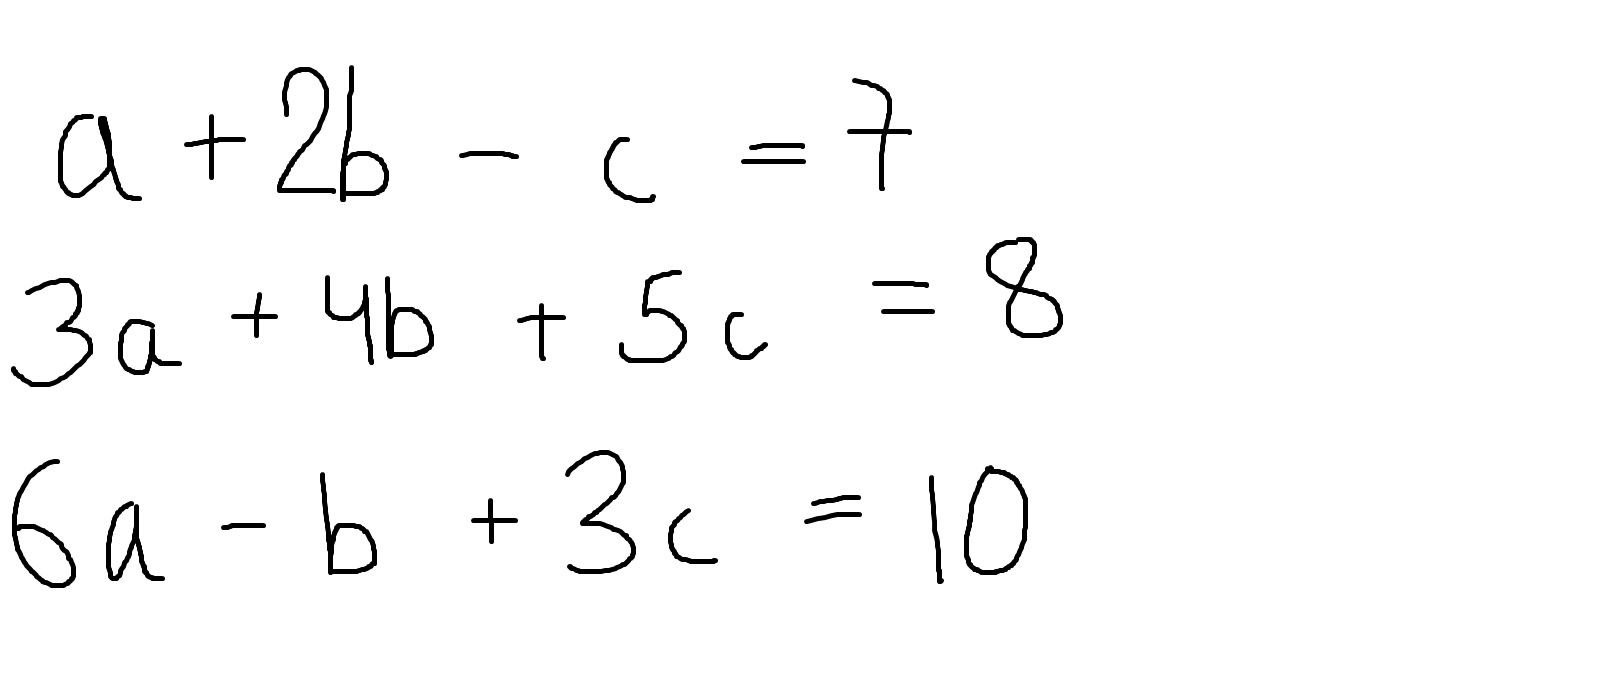 a + 2b - c = 7
3a + 4b + 5c = 8
6a - b + 3c = 10